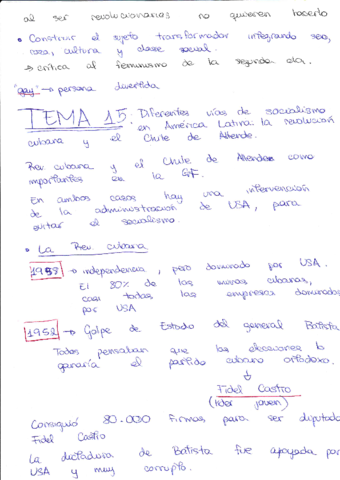 al ser revolucionarias no quieren hacerlo
• Construir el sujeto transformador integrando sexo,
raza, cultura y clase social.
→ crítica al feminismo de la segunda ola.
"gay" → persona divertida
TEMA 15. Diferentes vías de socialismo
en América Latina: la revolución
cubana y el Chile de Allende.
Rev. cubana y el Chile de Allende como
importantes en la GF.
En ambos casos hay una intervención
de la administración de USA, para
quitar el socialismo.
• La Rev. cubana
→ independencia, pero dominado por USA.
El 80% de las cubanas,
casi todas las empresas dominadas
por USA
1952 → Golpe de Estado del general Batista
Todos pensaban que las elecciones lo
ganaría el partido cubano ortodoxo.
↓
Fidel Castro
(líder joven)
Consiguió 80.000 firmas para ser diputado
Fidel Castro
La dictadura de Batista fue apoyada por
USA y muy corrupto.